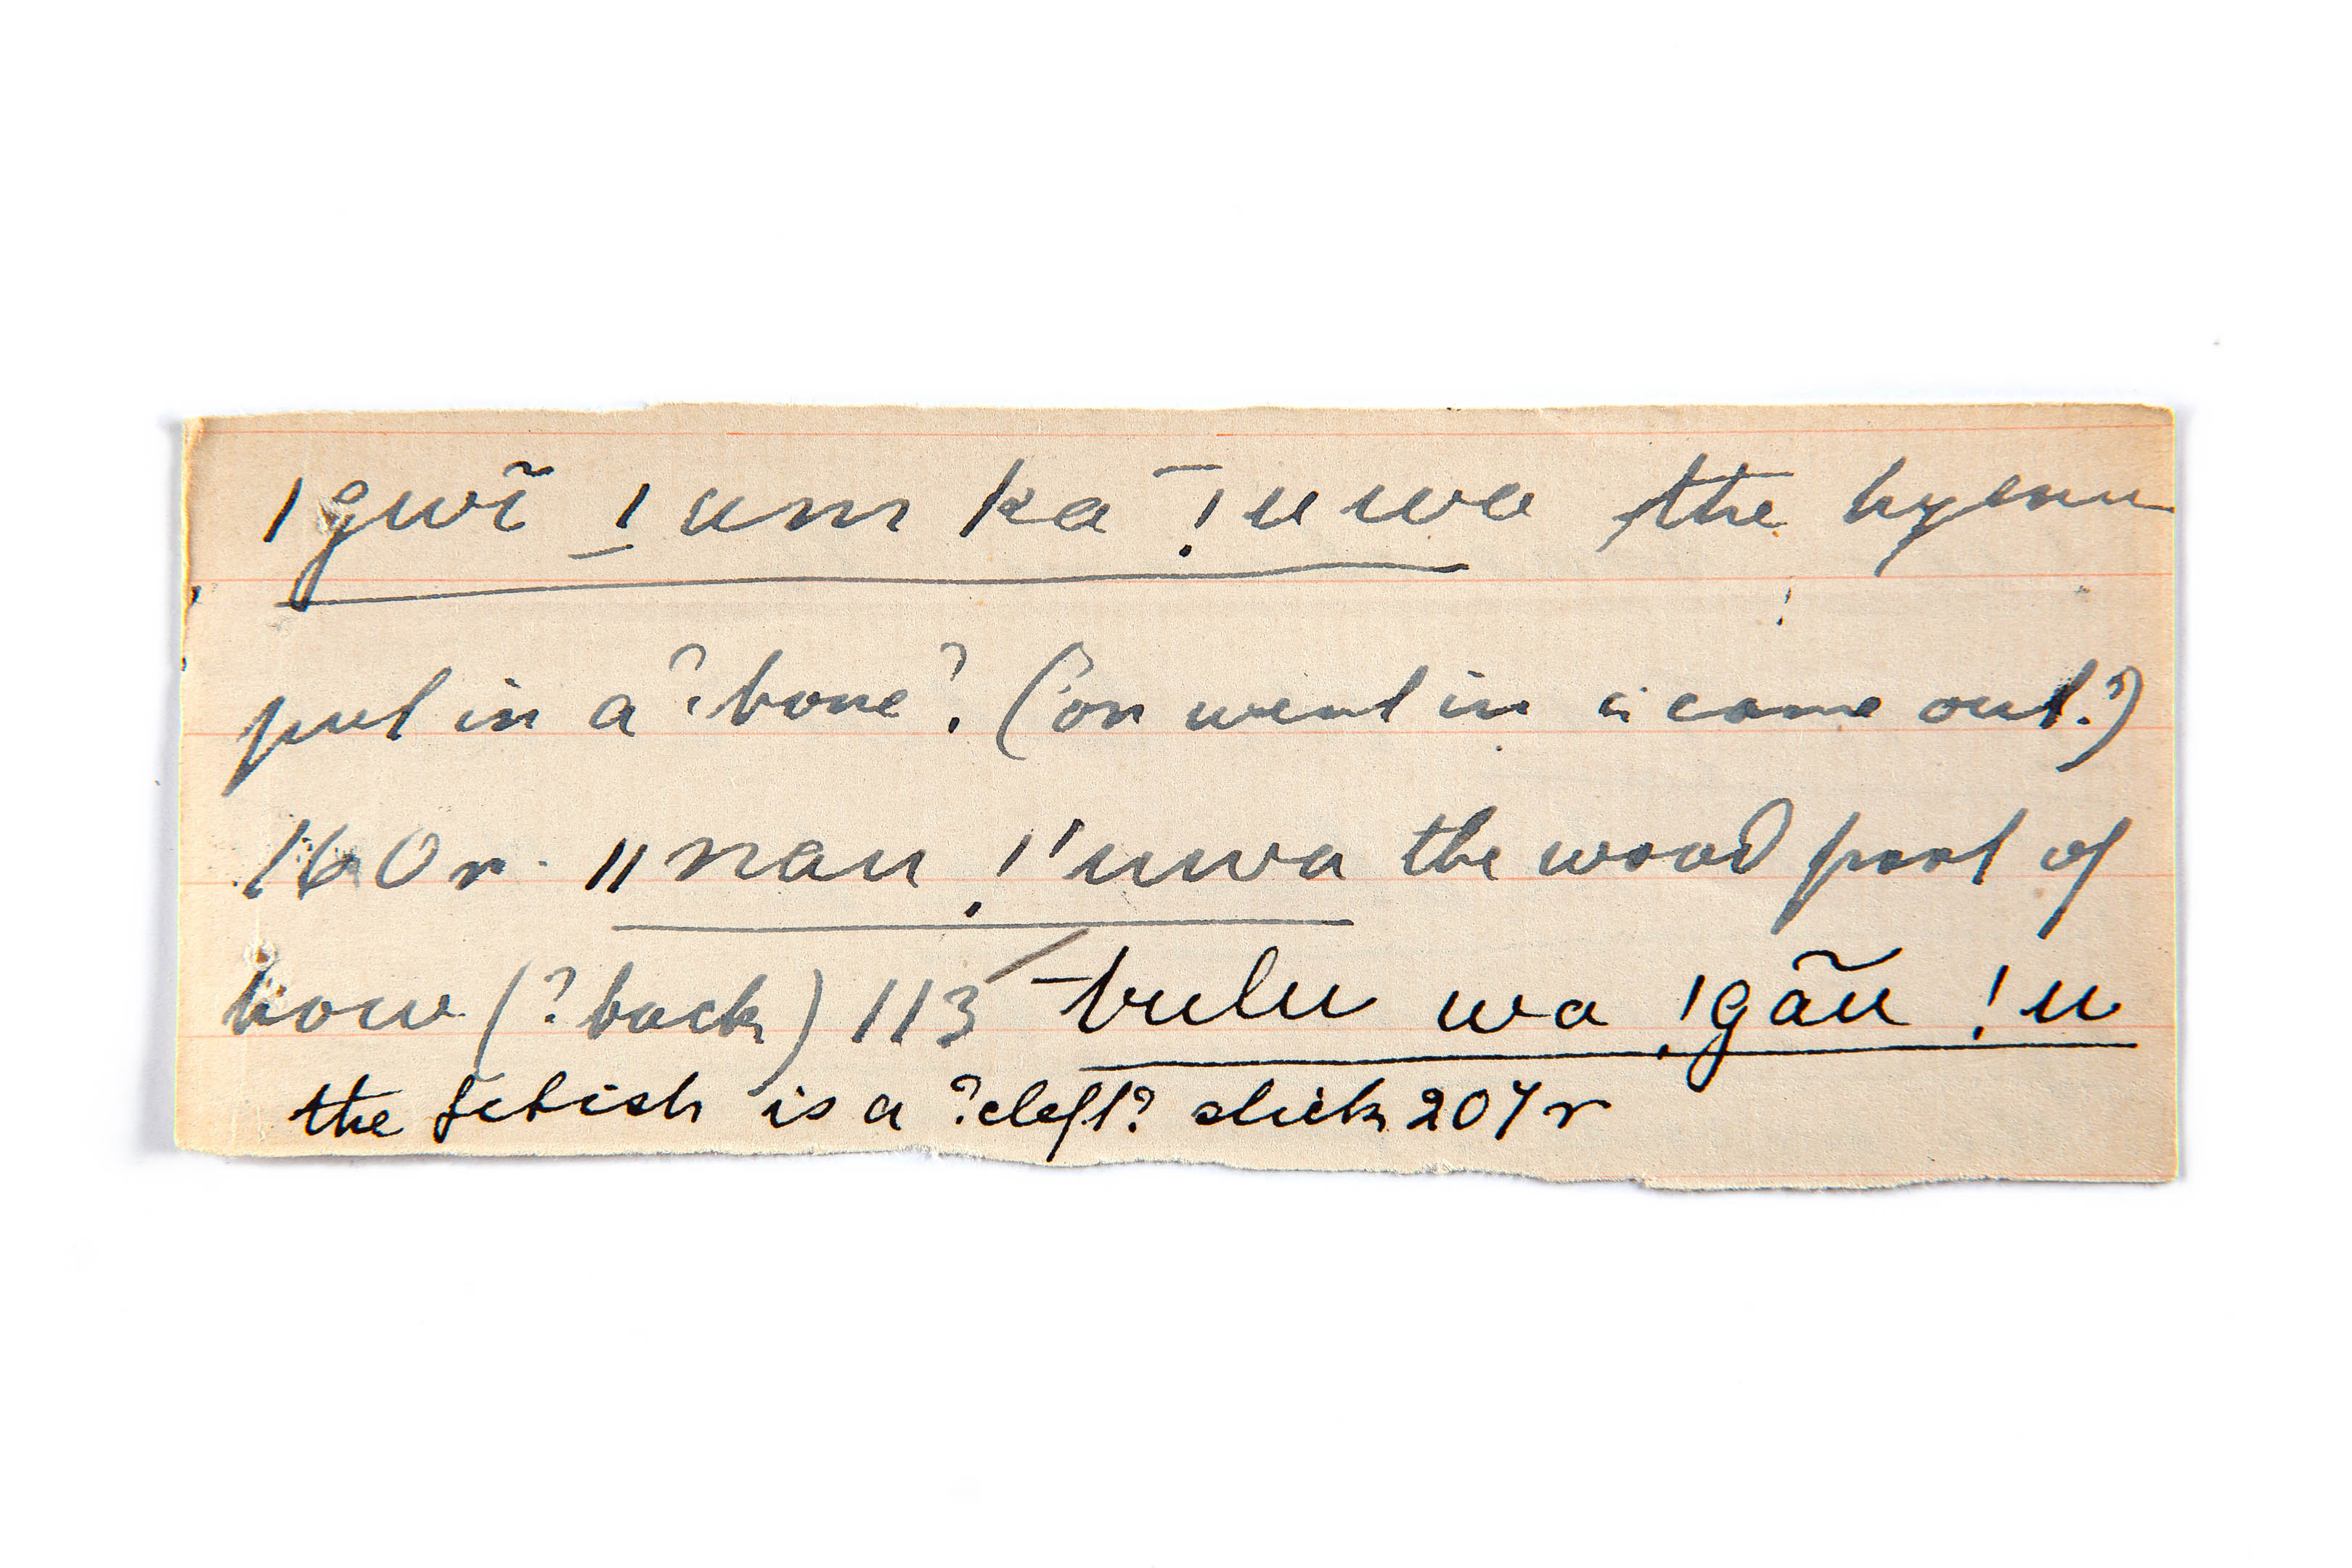 ǀgwĩ ǀ̱um ka ˉ!uwa the hyena
put in a ? bone ? (or went in & came out?)
160r. ǁnau !'uwa the wood part of
bow (? back) 113 ˉbulu wa !gãu !u
the fetish is a ?cleft? stick 207r